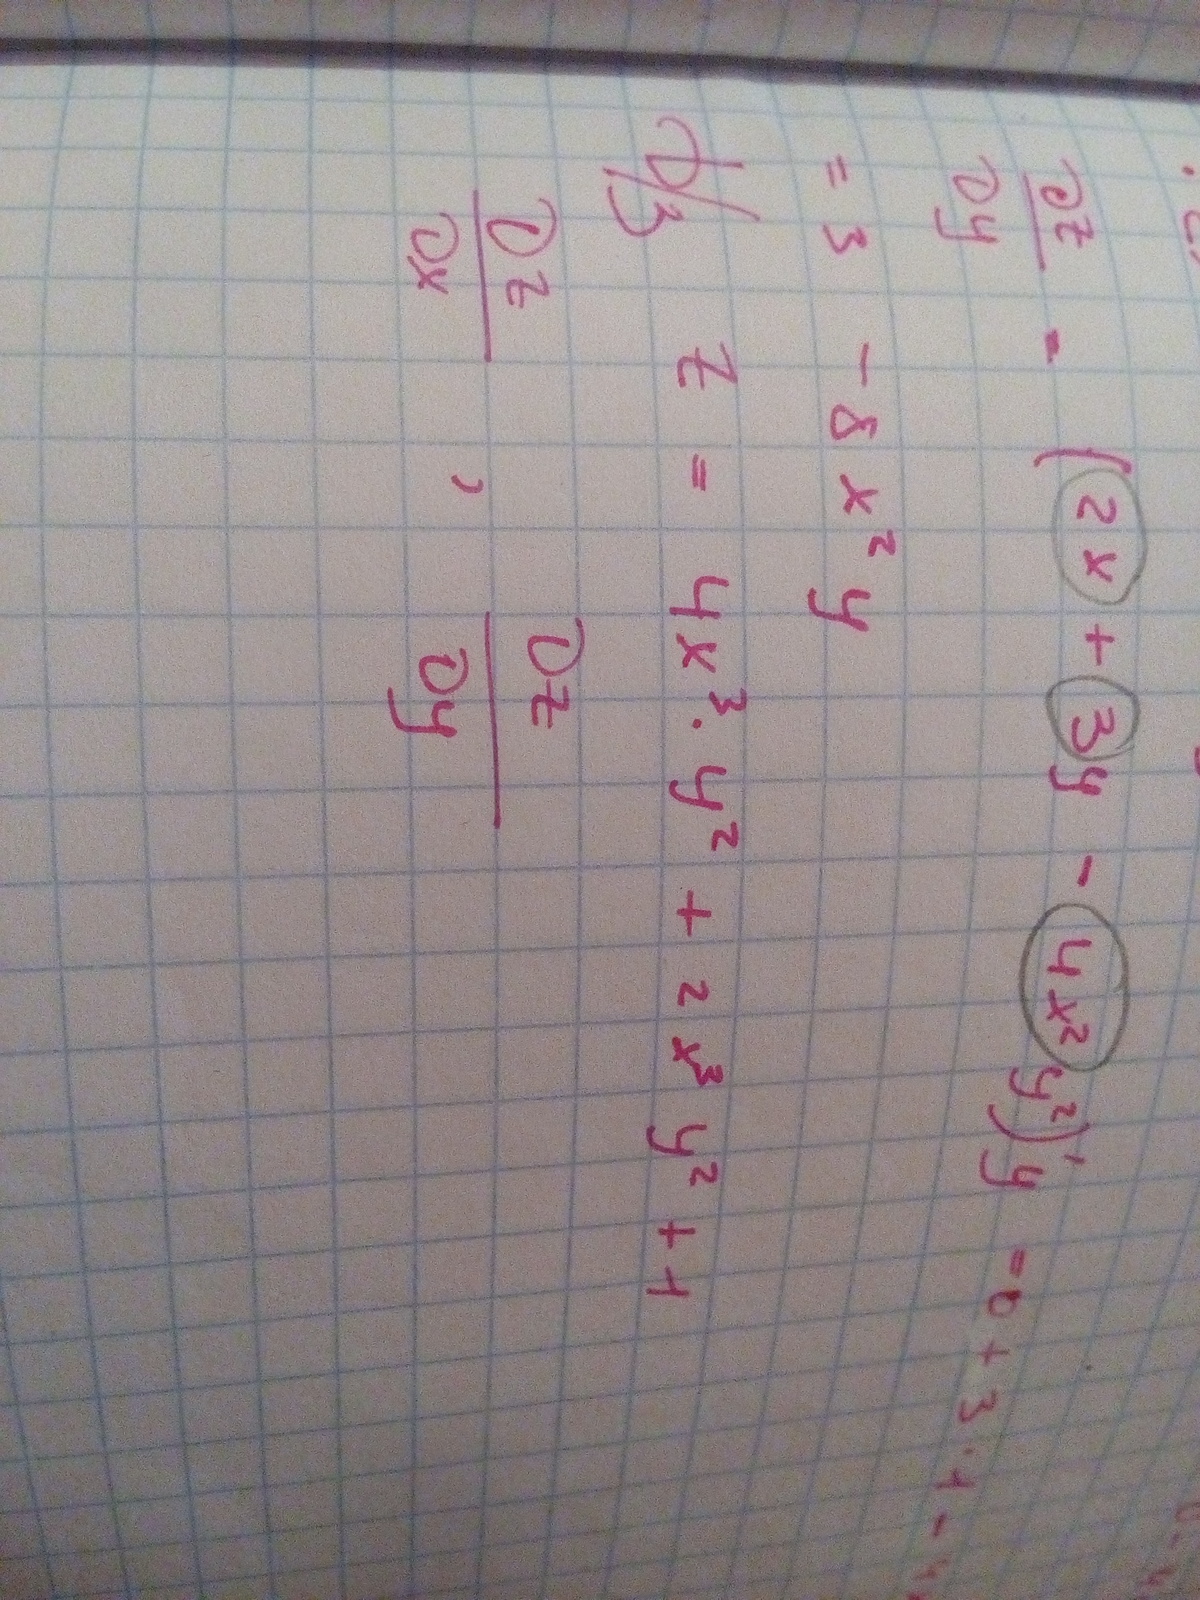 ∂z/∂y = (2x + 3y - 4x²y²)'y = 0 + 3·1 -
= 3 - 8x²y
D/3 z = 4x³·y² + 2x³y² + 1
∂z/∂x , ∂z/∂y